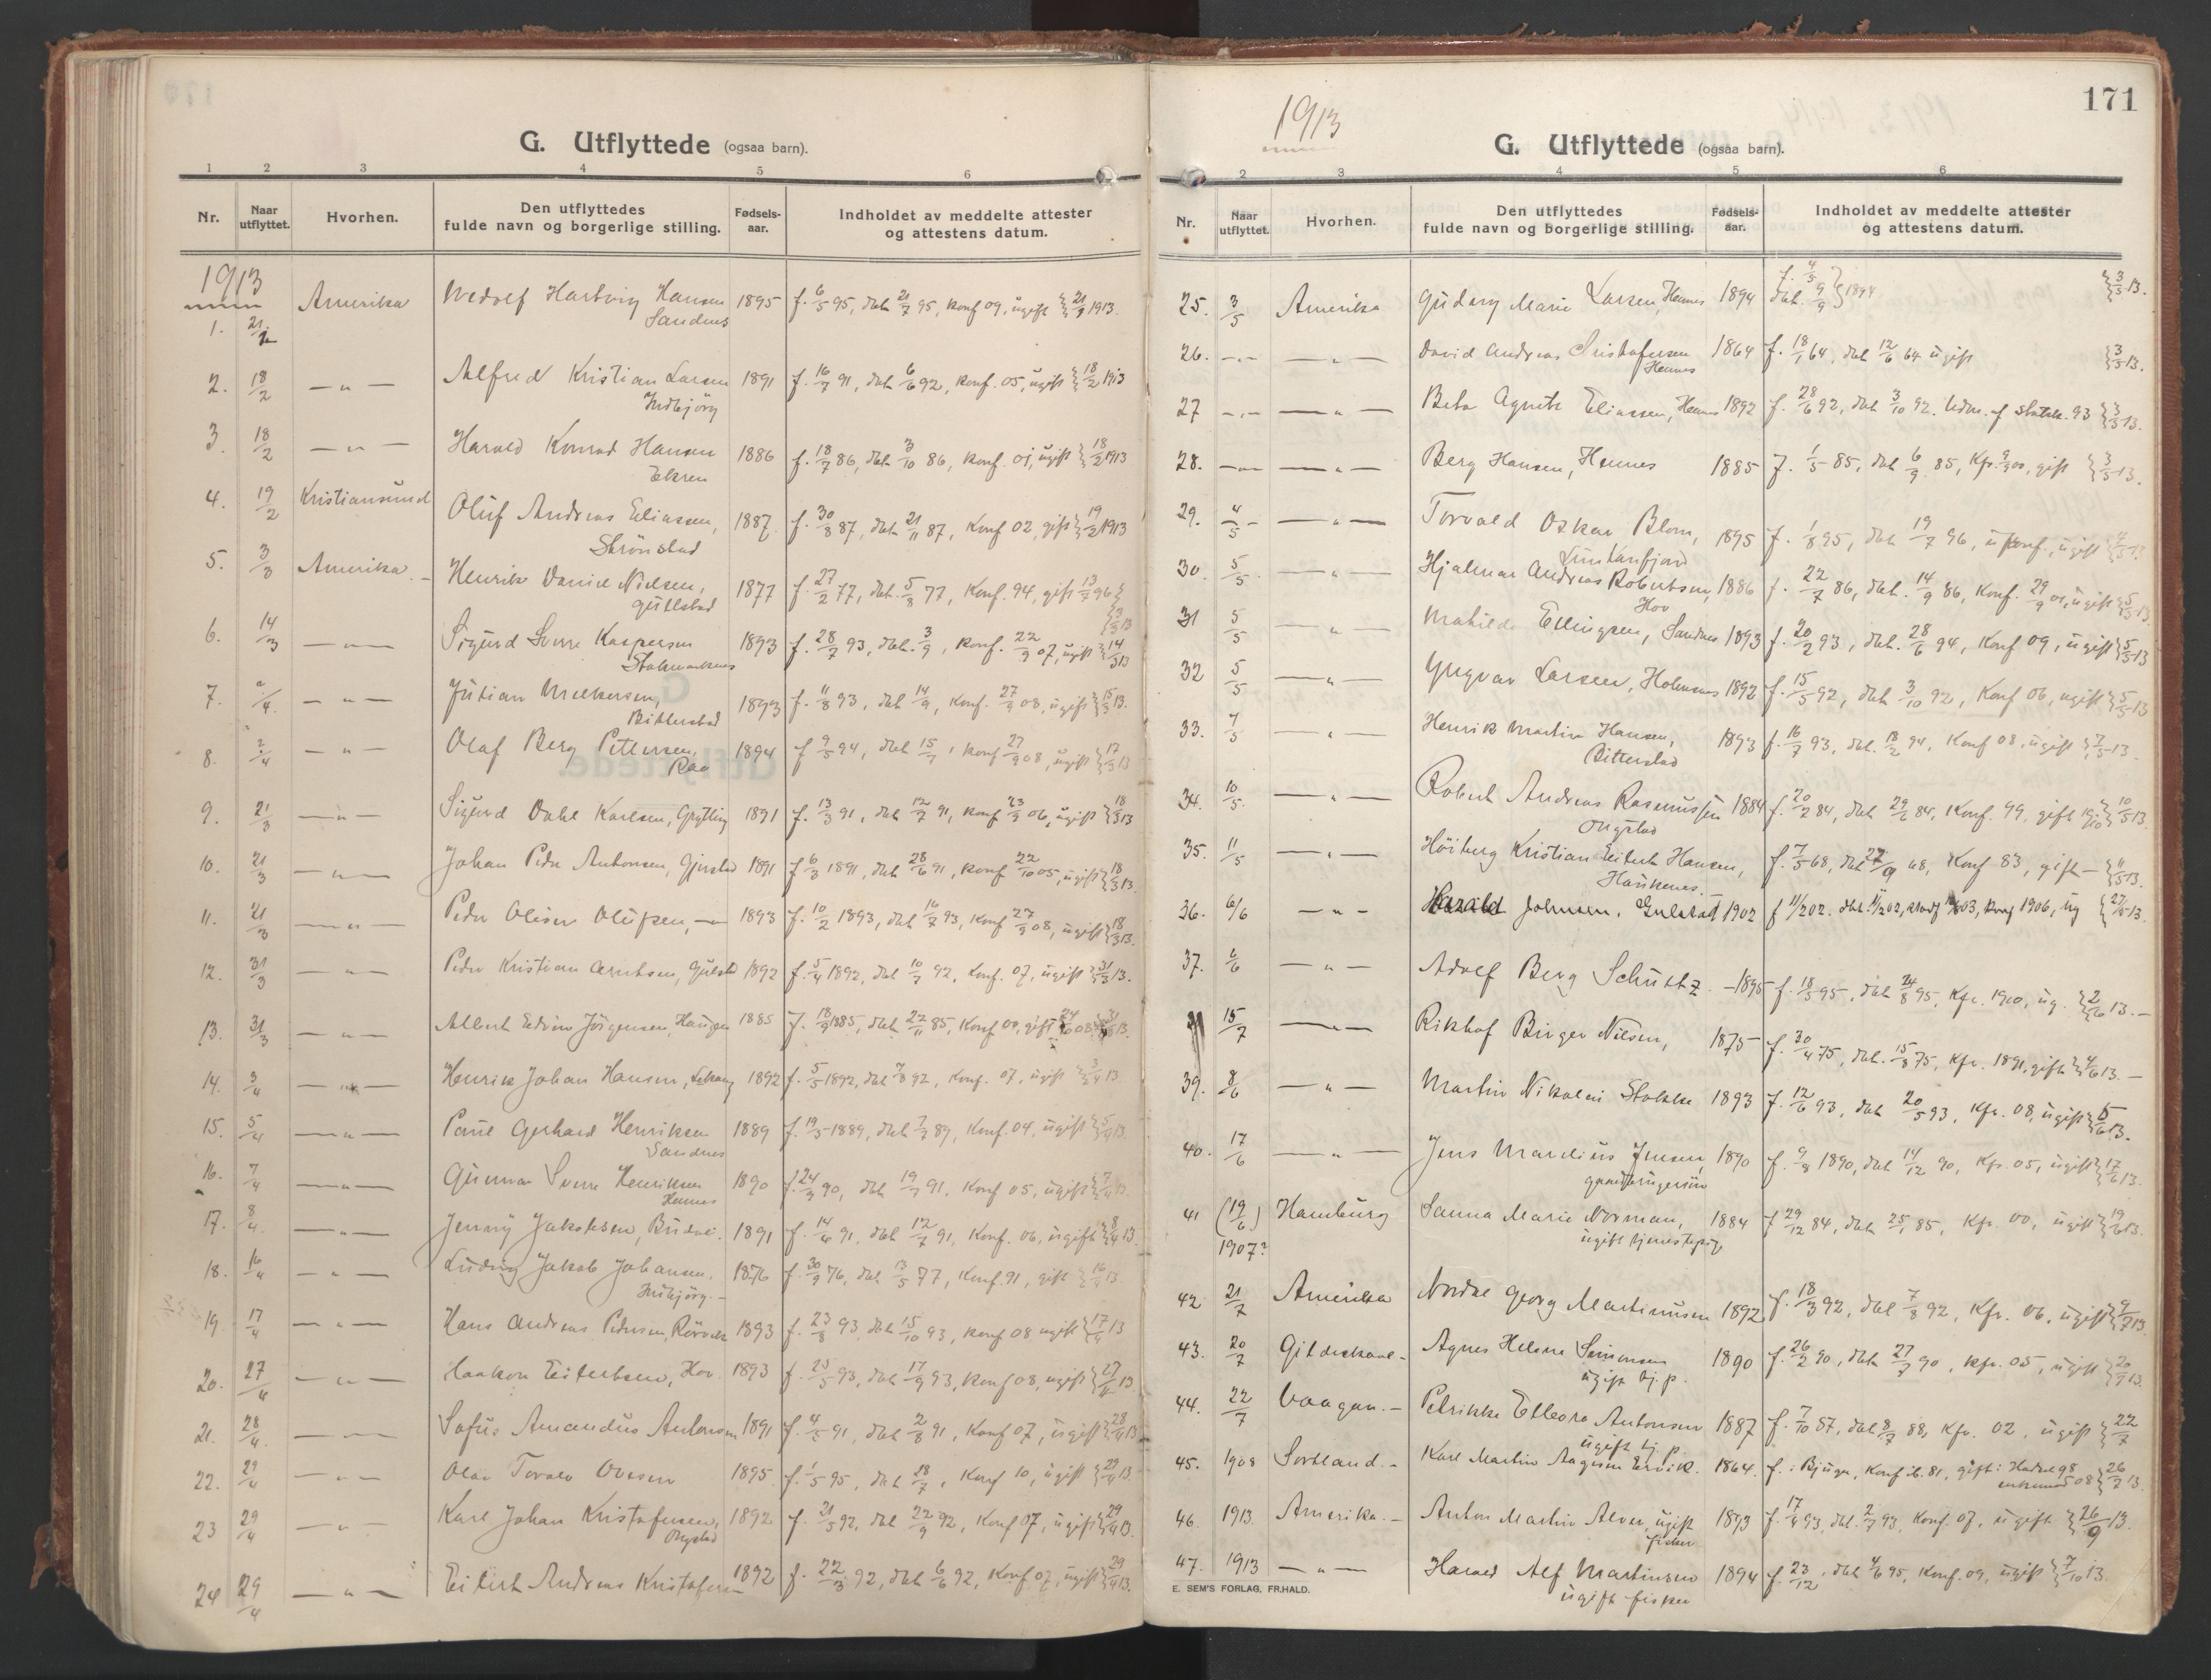 G. Utflyttede (ogsaa barn).
1 2 3 4 5 6
Nr. Naar utflyttet. Hvorhen. Den utflyttedes fulde navn og borgerlige stilling. Fødsels-aar. Indholdet av meddelte attester og attestens datum.
1913
1. 21/2 Amerika Hartvig Hansen 1895 f. 6/5 95, døbt 21/7 95, konf 09, ugift 1913.
Sandnes
2. 18/2 — „ — Alfred Kristian Larsen 1891 f. 16/7 91, døbt 6/6 92, konf. 05, ugift } 18/2 1913
Indbjörg
3. 18/2 — „ — Harald Konrad Hansen 1886 f. 18/7 86, døbt 3/10 86, konf. 01, ugift } 18/2 1913
Ekren
4. 19/2 Kristiansund Oluf Andreas Eliassen, 1887. f. 30/8 87, døbt 21/11 87, Konf 02, gift } 19/2 1913
5. 3/3 Amerika. – Henrik Daniel Nielsen, 1877 f. 27/2 77, døbt. 5/8 77, Konf. 94, gift
Gullstad
6. 14/3 — „ — Sigurd Sverre Kaspersen 1893 f. 28/7 93, døbt. 3/9, konf. 22/9 07, ugift } 14/3 13
7. — „ — Julian Mikkersen, 1893 f. 11/8 93, døbt 14/9, konf. 27/9 08, ugift } 15/3 13.
Bitterstad
8. 2/4 — „ — Olaf Berg Pettersen, 1894 f 9/5 94, døbt 15/7, konf 27/9 08, ugift } 17/3 13
9. 21/3 — „ — Sigurd Dahl Karlsen, Grytting 1891 f. 13/3 91, døbt 12/7 91, konf 06, ugift } 18/3 13
10. 21/3 — „ — Johan Peder Antonsen, 1891 f 6/3 1891, døbt 28/6 91, konf 22/10 05, ugift } 18/3 13.
11. 21/3 — „ — Peder Oliver Olufsen, — 1893 f. 10/2 1893, døbt 16/7 93, Konf 27/9 08, ugift } 18/3 13.
12. 31/3 — „ — Peder Kristian Arntsen, Gulstad 1892 f. 5/4 1892, døbt 10/7 92, Konf. 07, ugift } 31/3 13.
13. 31/3 — „ — Albert Edvin Jörgensen, Haugen 1885 f. 18/9 1885, døbt 22/11 85, Konf 00, gift
14. 3/4 — „ — Henrik Johan Hansen, 1892 f. 5/5 1892, døbt 7/8 92, Konf. 07, ugift } 3/4 13
15. 5/4 — „ — Paul Gerhard Henriksen 1889 f. 19/5 1889, døbt 7/7 89, Konf. 04, ugift } 5/4 13.
Sandnes
16. 7/4 — „ — Gunnar Sverre Henriksen 1890 f. 24/3 90, døbt 19/7 91, Konf 05, ugift } 7/4 13.
Hennes
17. 8/4 — „ — Jenny Jakobsen, 1891 f. 14/4 91, døbt 12/7 91, Konf. 06, ugift } 8/4 13.
18. 16/4 — „ — Ludvig Jakob Johansen. 1876 f. 30/9 76, døbt 13/5 77, Konf. 91, gift } 16/4 13
Indbjörg. –
19. 17/4 — „ — Hans Andreas Pedersen, 1893 f. 23/8 93, døbt 15/10 93, konf 08 ugift } 17/4 13
20. 27/4 — „ — Haakon Eilertsen, Hov. 1893 f. 93, døbt 17/9 93, konf 08, ugift } 27/4 13
21. 28/4 — „ — Sofus Amandus Antonsen 1891 f. 91, døbt 2/8 91, Konf 07, ugift } 28/4 13
22. 29/4 — „ — Olav Torvald Ovesen 1895. f. 1/5 95, døbt 28/7, Konf 10, ugift } 29/4 13
23 29/4 — „ — Karl Johan Kristofersen, 1892 f. 21/5 92, døbt 22/9 92, Konf 07, ugift } 29/4 13.
Ongstad
24 29/4 — „ — Eilert Andreas Kristofersen 1892 f. 22/3 92, døbt 6/6 92, Konf 07, ugift } 29/4 13.
171
1913
G. Utflyttede (ogsaa barn).
2 3 4 5 6
Nr. Naar utflyttet. Hvorhen. Den utflyttedes fulde navn og borgerlige stilling. Fødsels-aar. Indholdet av meddelte attester og attestens datum.
25. 3/5 Amerika Gudny Marie Larsen, Hennes 1894 f. 4/5 døbt. 9/9 } 1894 } 3/5 13.
26. – „ – — „ — David Andreas Kristofersen 1864 f. 18/1 64, døbt 12/6 64 ugift } 3/5 13.
Hennes
27 – „ – — „ — Agnete Eliassen, Hennes 1892 f. 28/6 92, døbt 3/10 92. Udm. af statsk. 93 } 3/5 13.
28. – „ – — „ — Berg Hansen, Hennes 1885 f. 1/5 85, døbt 6/9 85, Kfr. 00, gift } 3/5 13.
29. 4/5 – — „ — Torvald Oskar Blom, 1895 f. 1/8 95, døbt 19/7 96, ukonf., ugift
30. 5/5. — „ — Hjalmar Andreas Robertsen, 1886 f. 22/7 86, døbt. 14/9 86, Konf. 29/9 01, ugift } 5/5 13.
Hov
31 5/5 — „ — Mathilde Ellingsen, Sandnes 1893 f. 20/2 93, døbt. 28/6 94, Konf 09, ugift } 5/5 13
32 5/5 — „ — Yngvar Larsen, Holmsnes 1892 f. 15/5 92, døbt 3/10 92, Konf 06, ugift } 5/5 13
33. 7/5 — „ — Henrik Martin Hansen, 1893 f. 16/7 93, døbt. 18/2 94, Konf 08, ugift } 7/5 13.
Bitterstad
34. 10/5. — „ — Robert Andreas Rasmussen 1884 f. 20/2 84, døbt 29/6 84, Konf. 99, gift } 10/5 13.
Ongstad
35. 11/5 — „ — Höiberg Kristian Eilert Hansen, f. 7/5 68, døbt 27/9 68, Konf 83, gift – } 11/5 13.
Haukenes. –
36. 6/6 — „ — Harald Johnsen. Gulstad 1902 f 11/2 02. døbt. 11/2 02, 03, 1906, ug } 27/5 13.
37. 6/6 — „ — Adolf Berg Schultz. – 1895 f. 18/5 95, døbt 24/8 95, Kfr. 1910, ug. } 2/6 13. –
15/7 — „ — Rikhof Birger Nilsen, 1875 – f. 30/4 75, døbt. 15/8 75, Kfr. 1891, gift } 4/6 13. –
39. 8/6 — „ — Martin Nikolai Stokke 1893 f. 12/6 93, døbt 20/5 93, Kfr. 08, ugift } 5/6 13.
40. 17/6 — „ — Jens Marelius Jensen, 1890 f. 9/8 1890, døbt 14/12 90, Kfr. 05, ugift } 17/6 13.
41 (19/6) Hamburg Sanna Marie Norman, 1884 f 29/12 84, døbt 25/1 85, Kfr. 00, ugift } 19/6 13.
1907? ugift tjenestepige
42 21/7 Amerika Nordal Georg Martinussen 1892 f. 18/3 92, døbt 7/8 92, Kfr. 06, ugift } 9/7 13.
43. 20/7 Gildeskaal – Agnes Helene Simonsen 1890 f. 26/2 90, døbt 27/7 90, kfr. 05, ugift } 20/7 13.
ugift tj. p.
44. 22/7 Vaagan. – Petrikke Antonsen 1887 f. 7/10 87, døbt 8/7 88, Kfr. 02, ugift } 22/7
ugift tj. p.
45. 1908 Sortland. – Karl Martin Aagesen Ervik. 1864. f. i Bjugn, Konf ib. 81, gift i Hadsel 98 } 26/7 13.
enkemand 08
46. 1913. Amerika. – Anton Martin Alver, ugift 1893 f. 17/4 93, døbt. 2/7 93, Konf. 07, ugift } 26/9 13.
fisker
47. 1913 — „ — Harald Alf Martinsen 1894 f. 23/12, døbt 4/6 95, Konf. 09, ugift } 7/10 13.
ugift fisker
E. SEM'S FORLAG, FR.HALD.